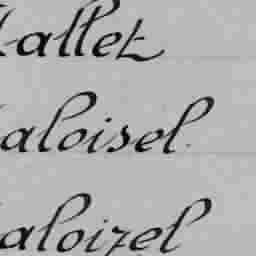 allet
aloisel
aloizel